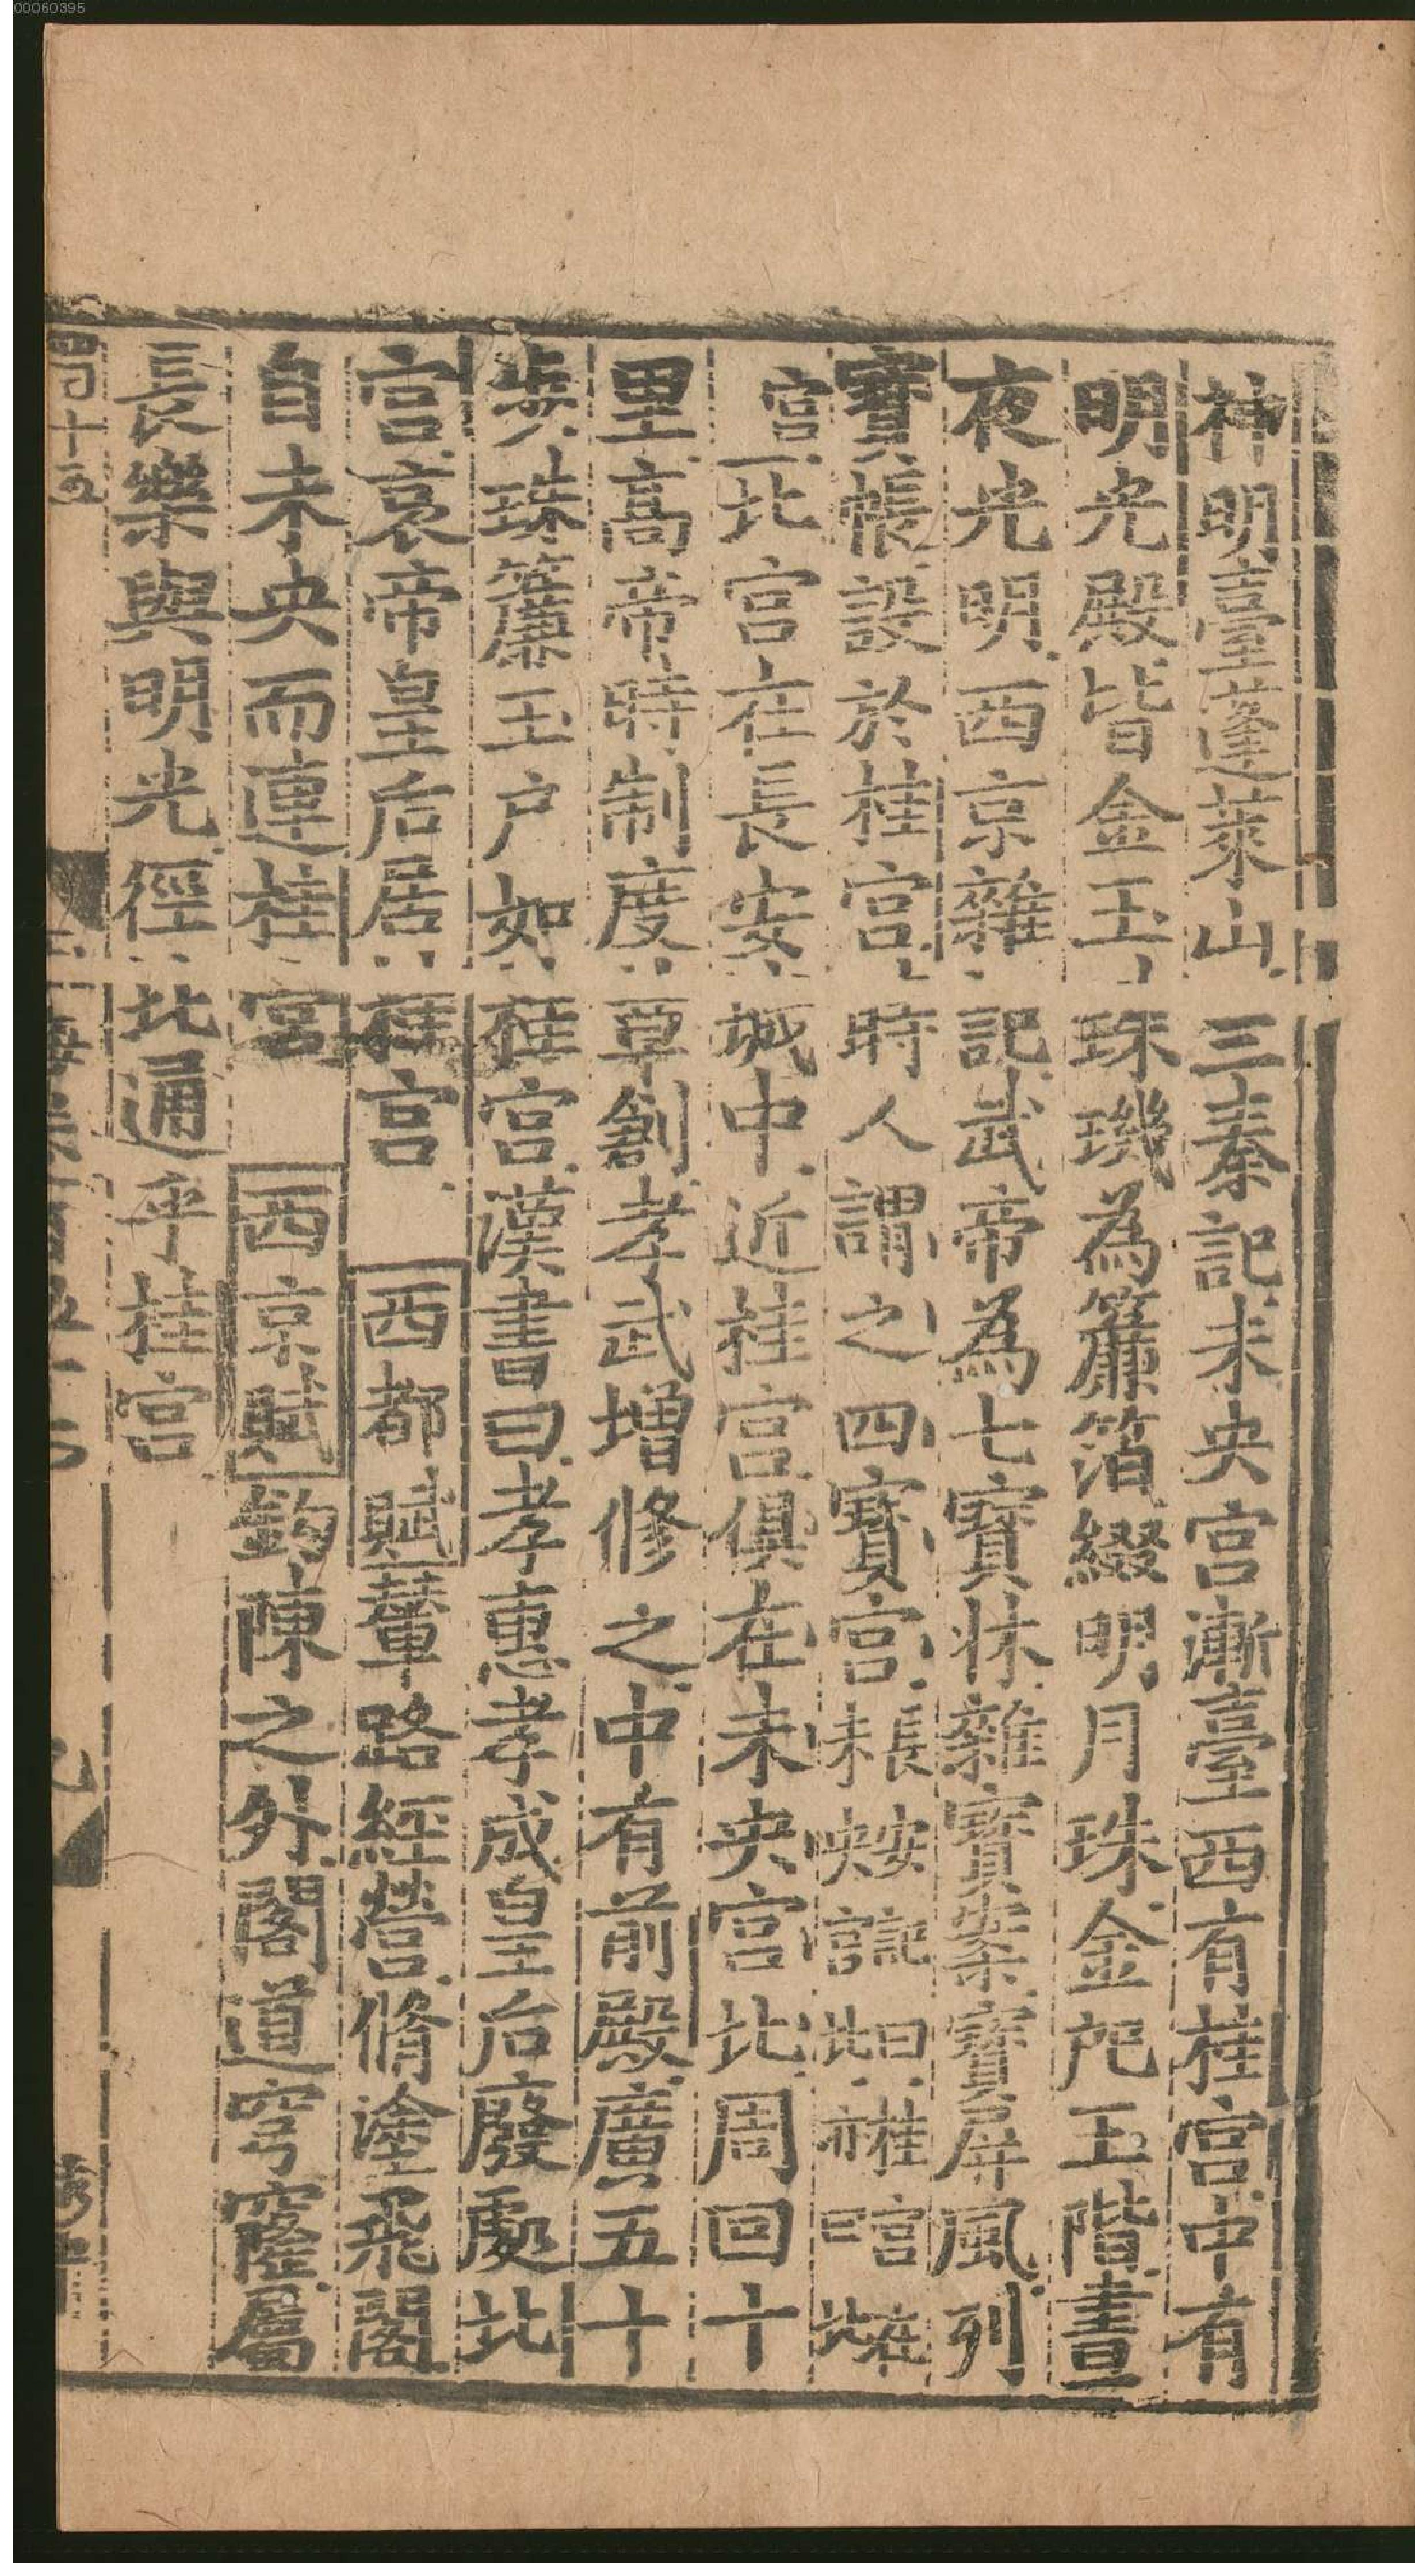 00060395
神明臺蓬萊山三秦記未央宮漸臺西有桂宮中有
明光殿皆金玉珠璣為簾箔綴明月珠金戺玉階晝
夜光明西京雜記武帝為七寶牀雜寶案寶屏風列
寶帳設於桂宮時人謂之四寶宮長安記曰桂宮在未央宮北亦曰北
宮北宮在長安城中近桂宮俱在未央宮北周回十
里高帝時制度草創孝武增修之中有前殿廣五十
步珠簾玉戶如桂宮漢書曰孝惠孝成皇后廢處北
宮哀帝皇后居桂宮西都賦輦路經營脩塗飛閣
自未央而連桂宮西京賦鉤陳之外閣道穹窿屬
長樂與明光徑北通乎桂宮
四百十五